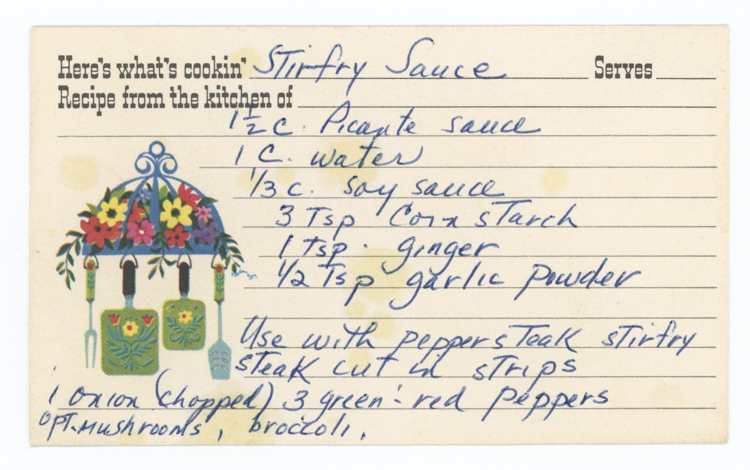 Here's what's cookin' Stirfry Sauce Serves
Recipe from the kitchen of
1 1/2 c. Picante sauce
1 C. water
1/3 c. soy sauce
3 Tsp Corn starch
1 tsp. ginger
1/2 Tsp garlic powder
Use with pepper steak stirfry
steak cut in strips
1 onion (chopped) 3 green - red peppers
OPT. mushrooms, broccoli,